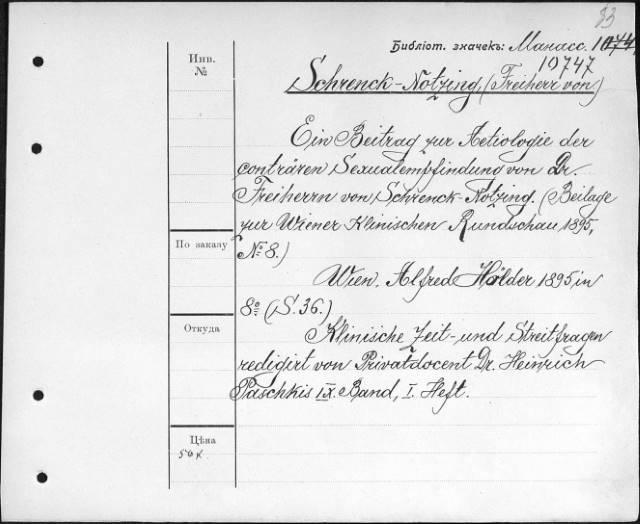 33
Библіот. значекъ: Манасс. 1074
10747
Инв.
№
Schrenck-Notzing, (Freiherr von)
Ein Beitrag zur Aetiologie der
conträren Sexualempfindung von Dr.
Freiherrn von Schrenck-Notzing. (Beilage
zur Wiener Klinischen Rundschau, 1895,
По заказу
№ 8.)
Wien. Alfred Hölder 1895, in
8º (S. 36.)
Откуда
Klinische Zeit- und Streitfragen
redigirt von Privatdocent Dr. Heinrich
Paschkis IX. Band, I. Heft.
Цѣна
50 к.